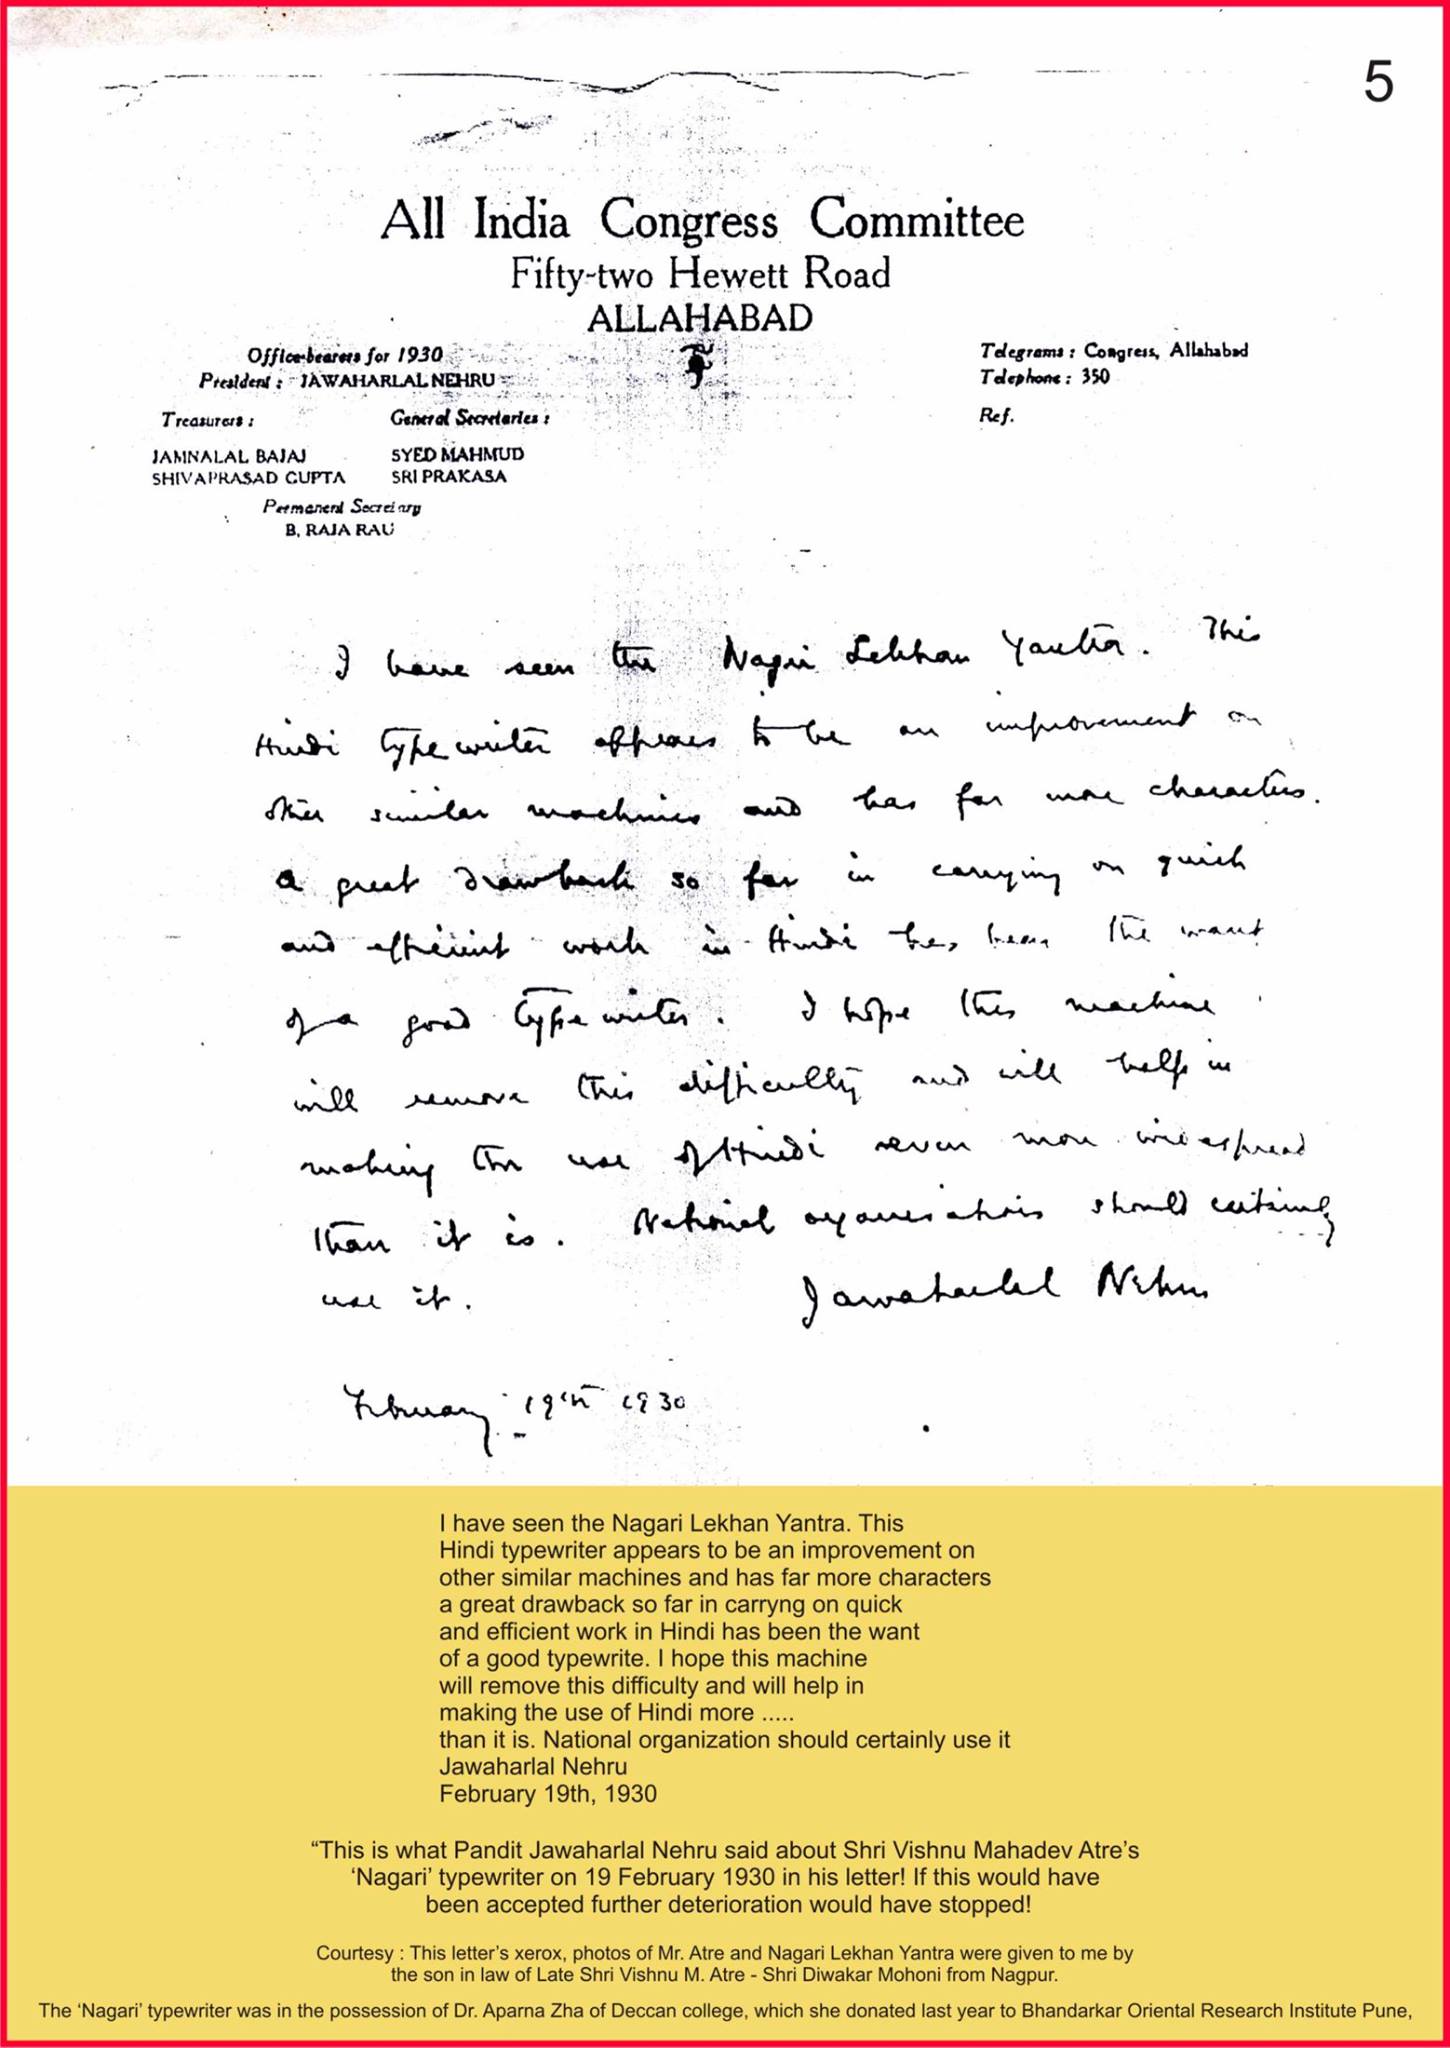 5
All India Congress Committee
Fifty-two Hewett Road
ALLAHABAD
Office-bearers for 1930
President : JAWAHARLAL NEHRU
Telegrams : Congress, Allahabad
Telephone : 350
Treasurers :
General Secretaries :
Ref.
JAMNALAL BAJAJ
SYED MAHMUD
SHIVAPRASAD GUPTA
SRI PRAKASA
Permanent Secretary
B. RAJA RAU
I have seen the Nagri Lekhan Yantra. This
Hindi typewriter appears to be an improvement on
other similar machines and has far more characters.
A great drawback so far in carrying on quick
and efficient work in Hindi has been the want
of a good typewriter. I hope this machine
will remove this difficulty and will help in
making the use of Hindi even more widespread
than it is. National organisations should certainly
use it.
Jawaharlal Nehru
February 19th 1930
I have seen the Nagari Lekhan Yantra. This
Hindi typewriter appears to be an improvement on
other similar machines and has far more characters
a great drawback so far in carryng on quick
and efficient work in Hindi has been the want
of a good typewrite. I hope this machine
will remove this difficulty and will help in
making the use of Hindi more .....
than it is. National organization should certainly use it
Jawaharlal Nehru
February 19th, 1930
“This is what Pandit Jawaharlal Nehru said about Shri Vishnu Mahadev Atre’s
‘Nagari’ typewriter on 19 February 1930 in his letter! If this would have
been accepted further deterioration would have stopped!
Courtesy : This letter’s xerox, photos of Mr. Atre and Nagari Lekhan Yantra were given to me by
the son in law of Late Shri Vishnu M. Atre - Shri Diwakar Mohoni from Nagpur.
The ‘Nagari’ typewriter was in the possession of Dr. Aparna Zha of Deccan college, which she donated last year to Bhandarkar Oriental Research Institute Pune,